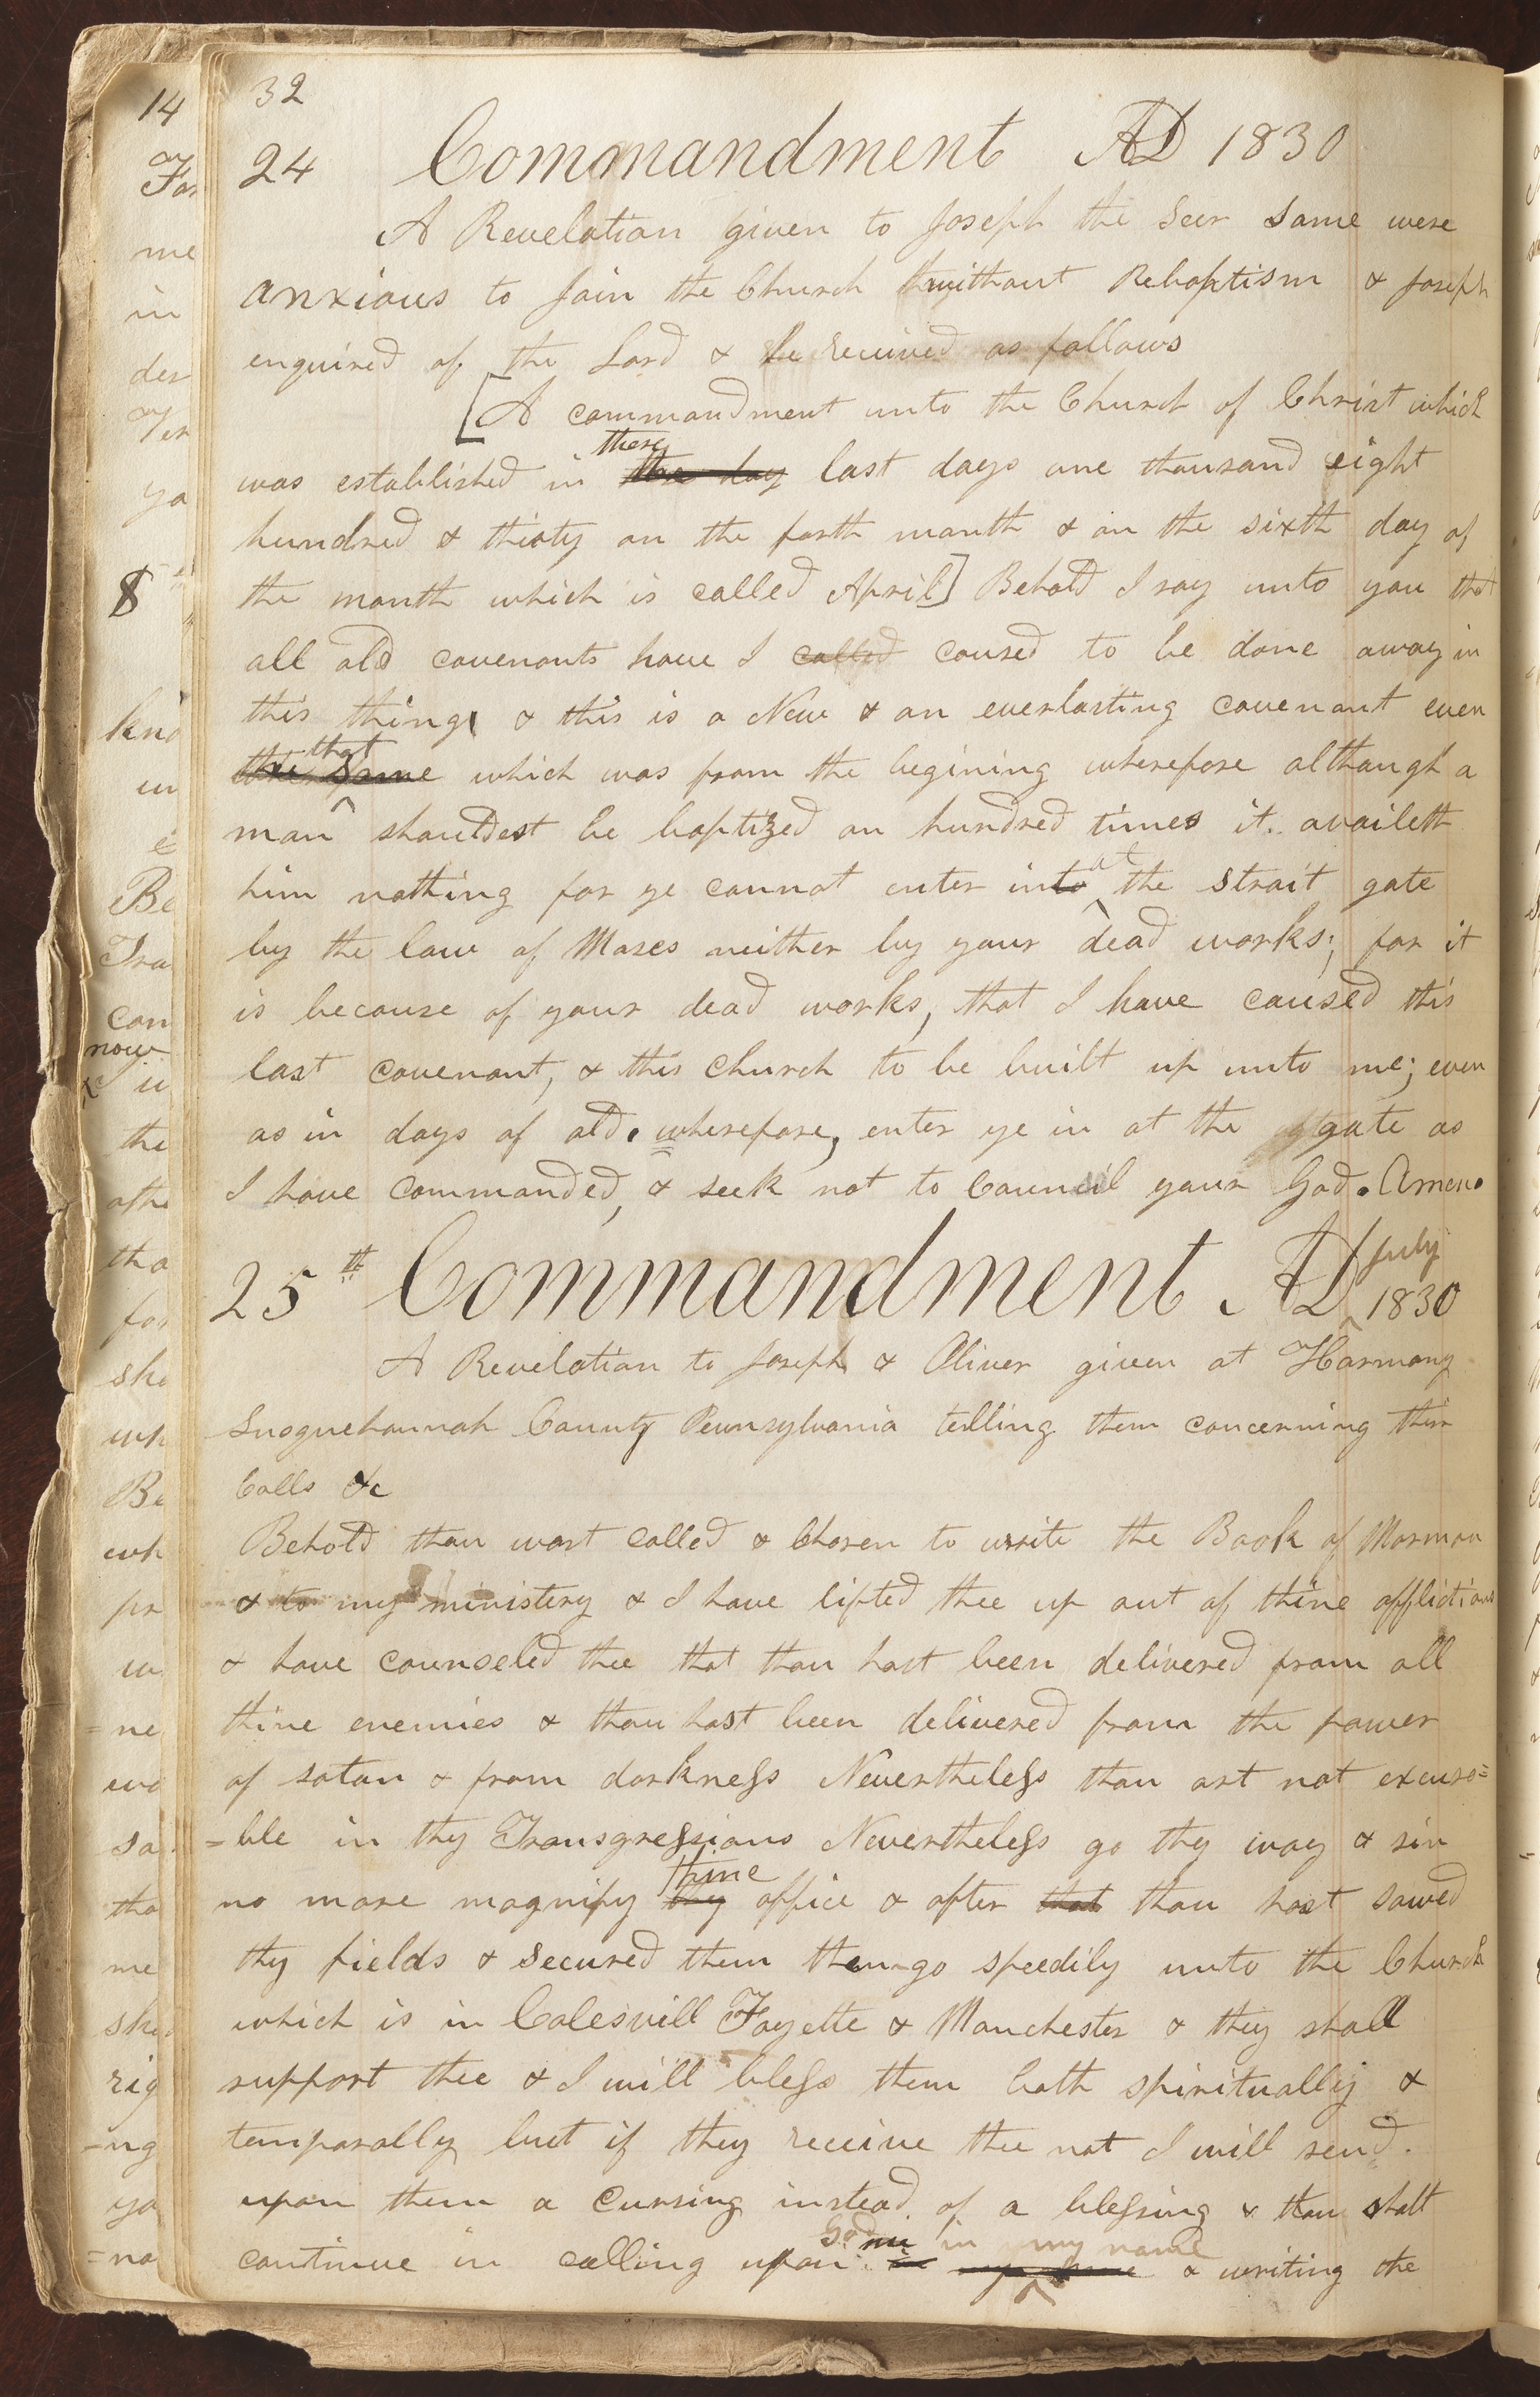 32
24 Commandment AD 1830
A Revelation given to Joseph the Seer Some were
anxious to Join the Church without Rebaptism & Joseph
enquired of the Lord & he received as follows
[A commandment unto the Church of Christ which
these
was established in the day last days one thousand eight
hundred & thirty on the forth month & on the sixth day of
the month which is called April] Behold I say unto you that
all old covenants have I called caused to be done away in
this thing & this is a New & an everlasting covenant even
that
the same which was from the begining wherefore although a
man shouldest be baptized an hundred times it availeth
at
him nothing for ye cannot enter into the strait gate
by the law of Moses neither by your dead works; for it
is because of your dead works, that I have caused this
last covenant, & this Church to be built up unto me; even
as in days of old. wherefore, enter ye in at the gate as
I have commanded, & seek not to Council your God. Amen.
July
25th Commandment AD 1830
A Revelation to Joseph & Oliver given at Harmony
Susquehannah County Pennsylvania telling them concerning their
Calls &c
Behold thou wast called & Chosen to write the Book of Mormon
& to my ministery & I have lifted thee up out of thine afflictions
& have counseled thee that thou hast been delivered from all
thine enemies & thou hast been delivered from the power
of satan & from darkness Nevertheless thou art not excusa=
=ble in thy Transgressions Nevertheless go thy way & sin
thine
no more magnify thy office & after that thou hast sowed
thy fields & Secured them then go speedily unto the Church
which is in Colesvill Fayette & Manchester & they shall
support thee & I will bless them both spiritually &
temporally but if they receive thee not I will send
upon them a Cursing instead of a blessing & thou shalt
God in my name
continue in calling upon & writing the
14
For
me
in
der
Ver
ya
8
kno
un
Be
Tra
con
now
the
othe
tha
for
sha
wh
Be
wh
pr
ne
wo
sa
tha
me
sha
rig
=ng
yo
=no